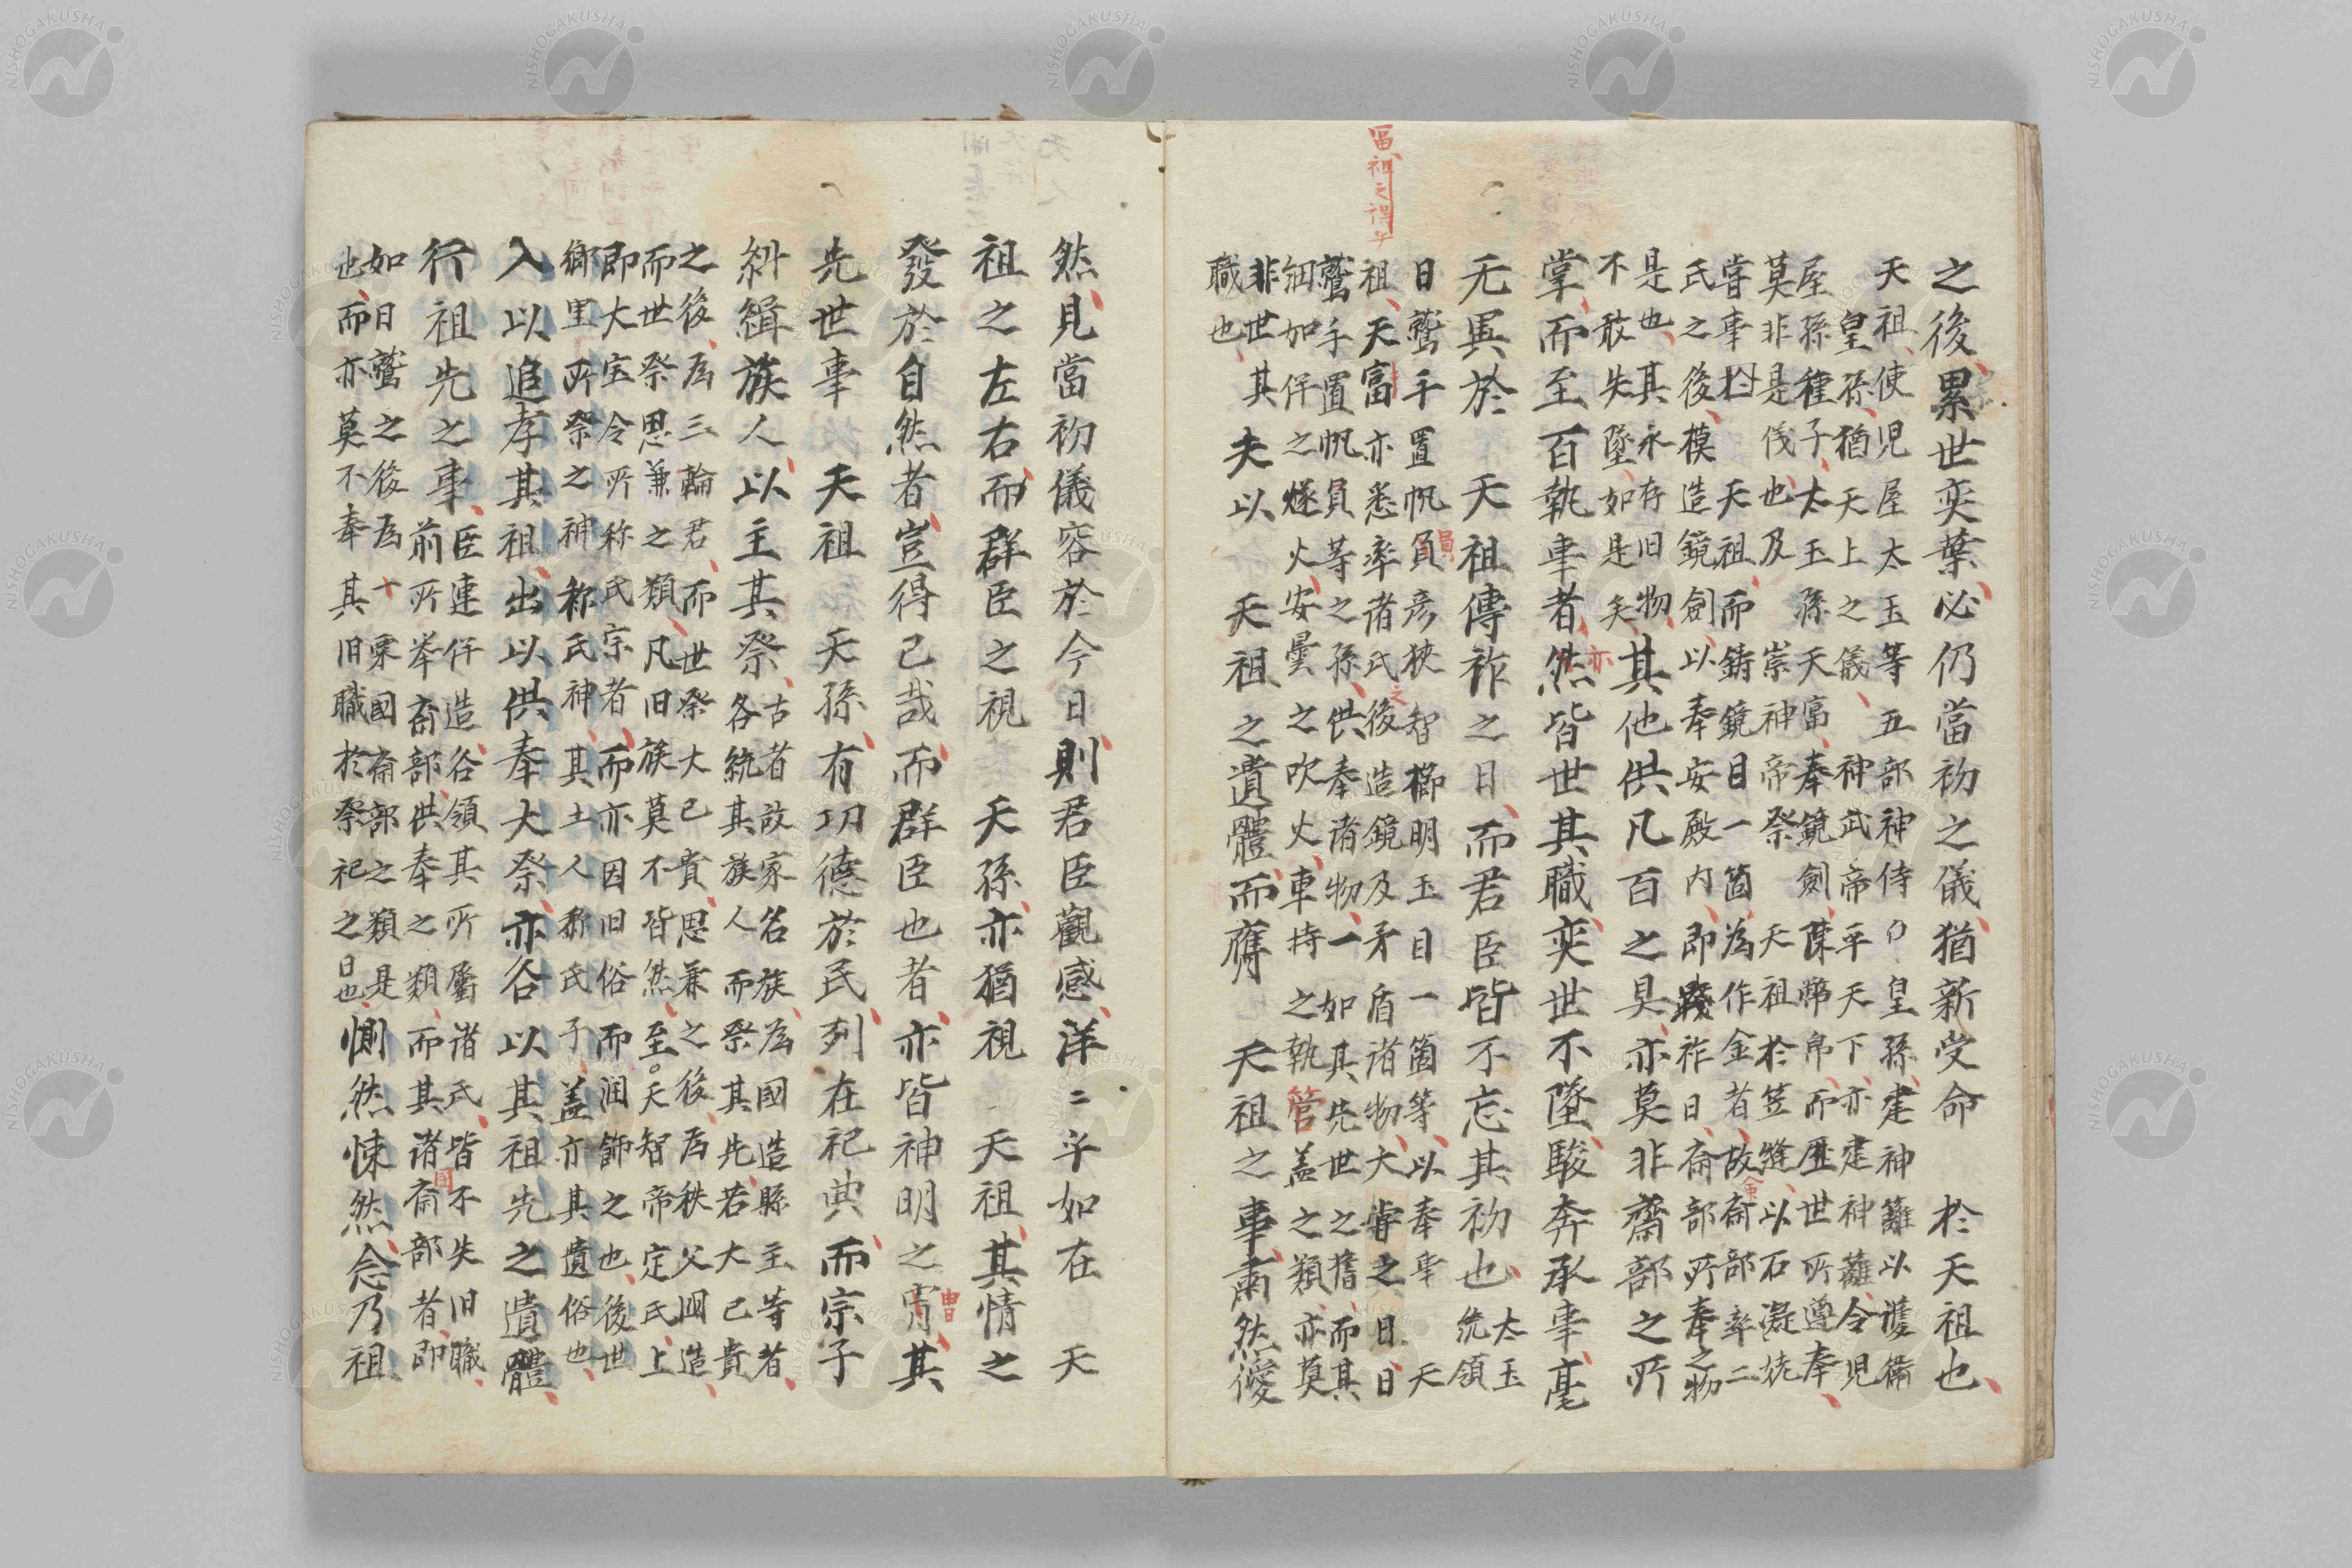 之後累世奕葉必仍當初之儀猶新受命 於天祖也
天祖使児屋太玉等五部神侍 皇孫建神籬以護衛
皇孫猶天上之儀 神武帝平天下亦建神籬令児
屋孫種子太玉孫天富奉鏡劍陳幣帛而歴世所遵奉
莫非是伐也及崇神帝祭天祖於笠縫以石凝姥
甞事 天祖而鋳鏡目一箇為作金者故斎部率二
氏之後模造鏡劍以奉安殿内即踐祚日斎部所奉之物
是也其永存旧物
不敢失墜如是矣
其他供凡百之具亦莫非齋部之所
亦
掌而至百執事者然皆世其職奕世不墜駿奔承事毫
无異於 天祖傳祚之日而君臣皆不忘其初也
太玉
統領
日鷲手置帆負彦狭智櫛明玉目一箇等以奉事 天
祖天富亦悉率諸氏後造鏡及矛盾諸物大甞之日日
鷲手置帆負等之孫供奉諸物一如其先世之舊而其
細如伴之燧火安曇之吹火車持之執管盖之類亦莫
非世其
職也
夫以 天祖之遺體而膺 天祖之事肅然僾
然見當初儀容於今日則君臣觀感洋〻乎如在 天
祖之左右而群臣之視 天孫亦猶視 天祖其情之
發於自然者豈得已哉而群臣也者亦皆神明之冑其
先世事 天祖 天孫有功德於民列在祀典而宗子
糾緝族人以主其祭
古者故家名族為國造縣主等者
各統其族人而祭其先若大己貴
之後為三輪君而世祭大己貴思兼之後為秩父國造
而世祭思兼之類凡旧族莫不皆然至天智帝定氏上
即大宝令所称氏宗者而亦因旧俗而潤飾之也後世
鄉里所祭之神称氏神其土人称氏子盖亦其遺俗也
入以追孝其祖出以供奉大祭亦各以其祖先之遺體
行祖先之事
臣連伴造各領其所屬諸氏皆不失旧職
前所举斎部供奉之類而其諸斎部者即
如日鷲之後為十粟國斎部之類是
也而亦莫不奉其旧職於祭祀之日也
惻然悚然念乃祖